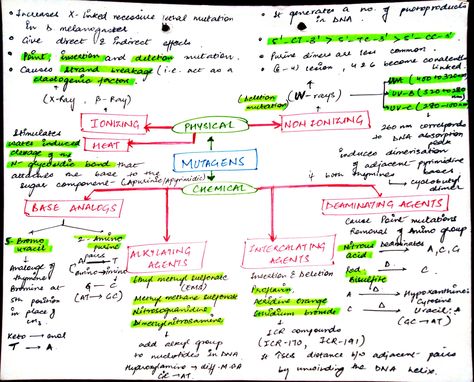 • Increases X-linked recessive lethal mutation
in D. melanogaster
• Give direct & indirect effects.
• Point, insertion and deletion mutation.
• Causes strand breakage (i.e. act as a
clastogenic factor.
(X-Ray, β-Ray)
• It generates a no. of photoproducts
in DNA.
• 5'-CT-3' > 5'-TC-3' > 5'-CC-3'
• Purine dimers are less
common.
(6-4) lesion, 4 & 6 become covalently
linked
(Deletion
mutation)
(UV-rays)
UV-B
UV-C
260 nm corresponds
to DNA absorption
peak
induces dimerisation
of adjacent pyrimidine
bases
cyclobutyl
dimer
IONIZING
PHYSICAL
NON IONIZING
HEAT
Stimulates
water induced
cleavage of the
N-glycosidic bond that
attaches the base to the
sugar component - (Apurinic/Apyrimidic)
MUTAGENS
CHEMICAL
BASE ANALOGS
5-Bromo
uracil
Analogue of
thymine
Bromine at
5th position
in place of
CH₃
Keto → enol
T → A
2-Amino
purine
A pairs T
amino-imino
G - C
(AT → GC)
ALKYLATING
AGENTS
Ethyl methyl sulfonate
(EMS)
Methyl methane sulfonate
Nitrosoguanidine
Dimethylnitrosamine
add alkyl group
to nucleotides in DNA
Hydroxylamine → diff. M.OA
GC → AT.
INTERCALATING
AGENTS
Insertion & Deletion
Proflavin
Acridine Orange
Ethidium bromide
ICR compounds
(ICR-170, ICR-191)
It ↑ses distance b/w adjacent pairs
by unwinding the DNA helix.
DEAMINATING AGENTS
Cause Point mutations
Removal of Amino group
Nitrous
acid
Deaminates
A, C, G
Bisulfite
C
A → Hypoxanthine:
Cytosine
C → Uracil: A
(GC → AT)